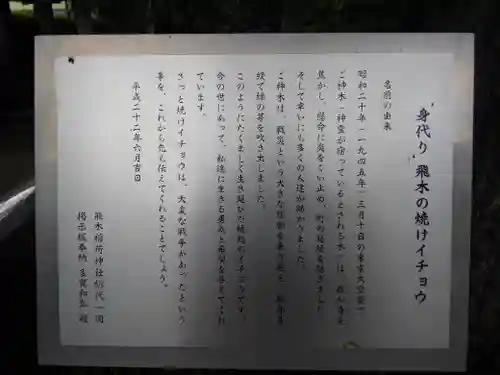 身代り 飛木の焼けイチョウ
名前の由来
昭和二十年(一九四五年)三月十日の東京大空襲で
ご神木(神霊が宿っているとされる木)は、我が身を
焦がし、懸命に炎をくい止め、町の延焼を防ぎました
そして幸いにも多くの人達が助かりました。
ご神木は、戦災という大きな
経て緑の芽を吹き出しました。
このようにたくましく生き延びた焼けイチョウです。
今の世にあって、私達に生きる勇気と希望を与えてくれ
ています。
きっと焼けイチョウは、大変な戦争があったという
事を、これからも先も伝えてくれることでしょう。
平成二十二年六月吉日
飛木稲荷神社総代一同
掲示板奉納